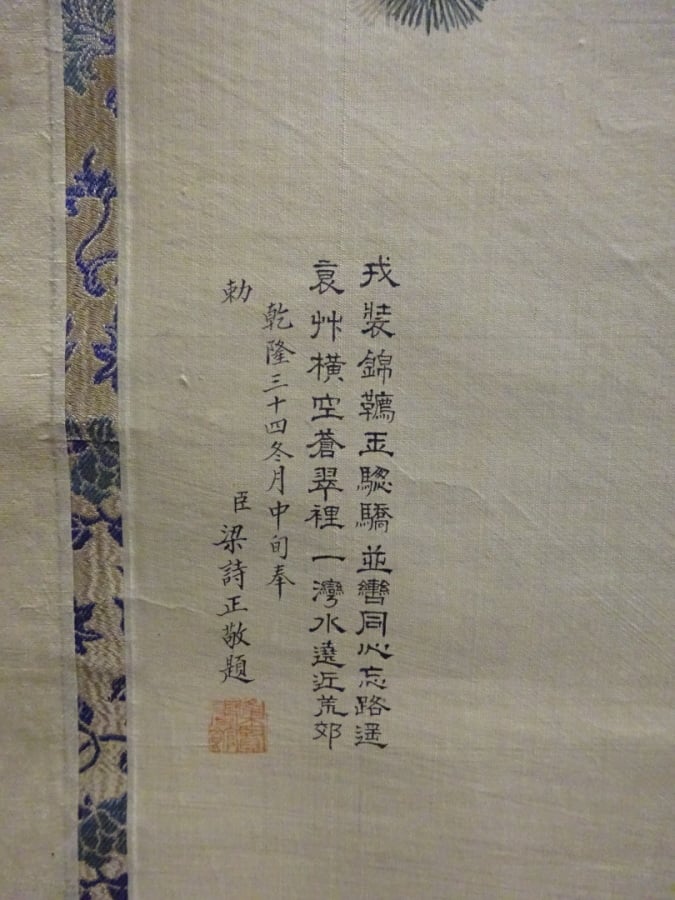 戎裝錦韉玉驄驕並轡同心忘路遥
衰艸橫空蒼翠裡一灣水遶近荒郊
乾隆三十四冬月中旬奉
勅 臣梁詩正敬題